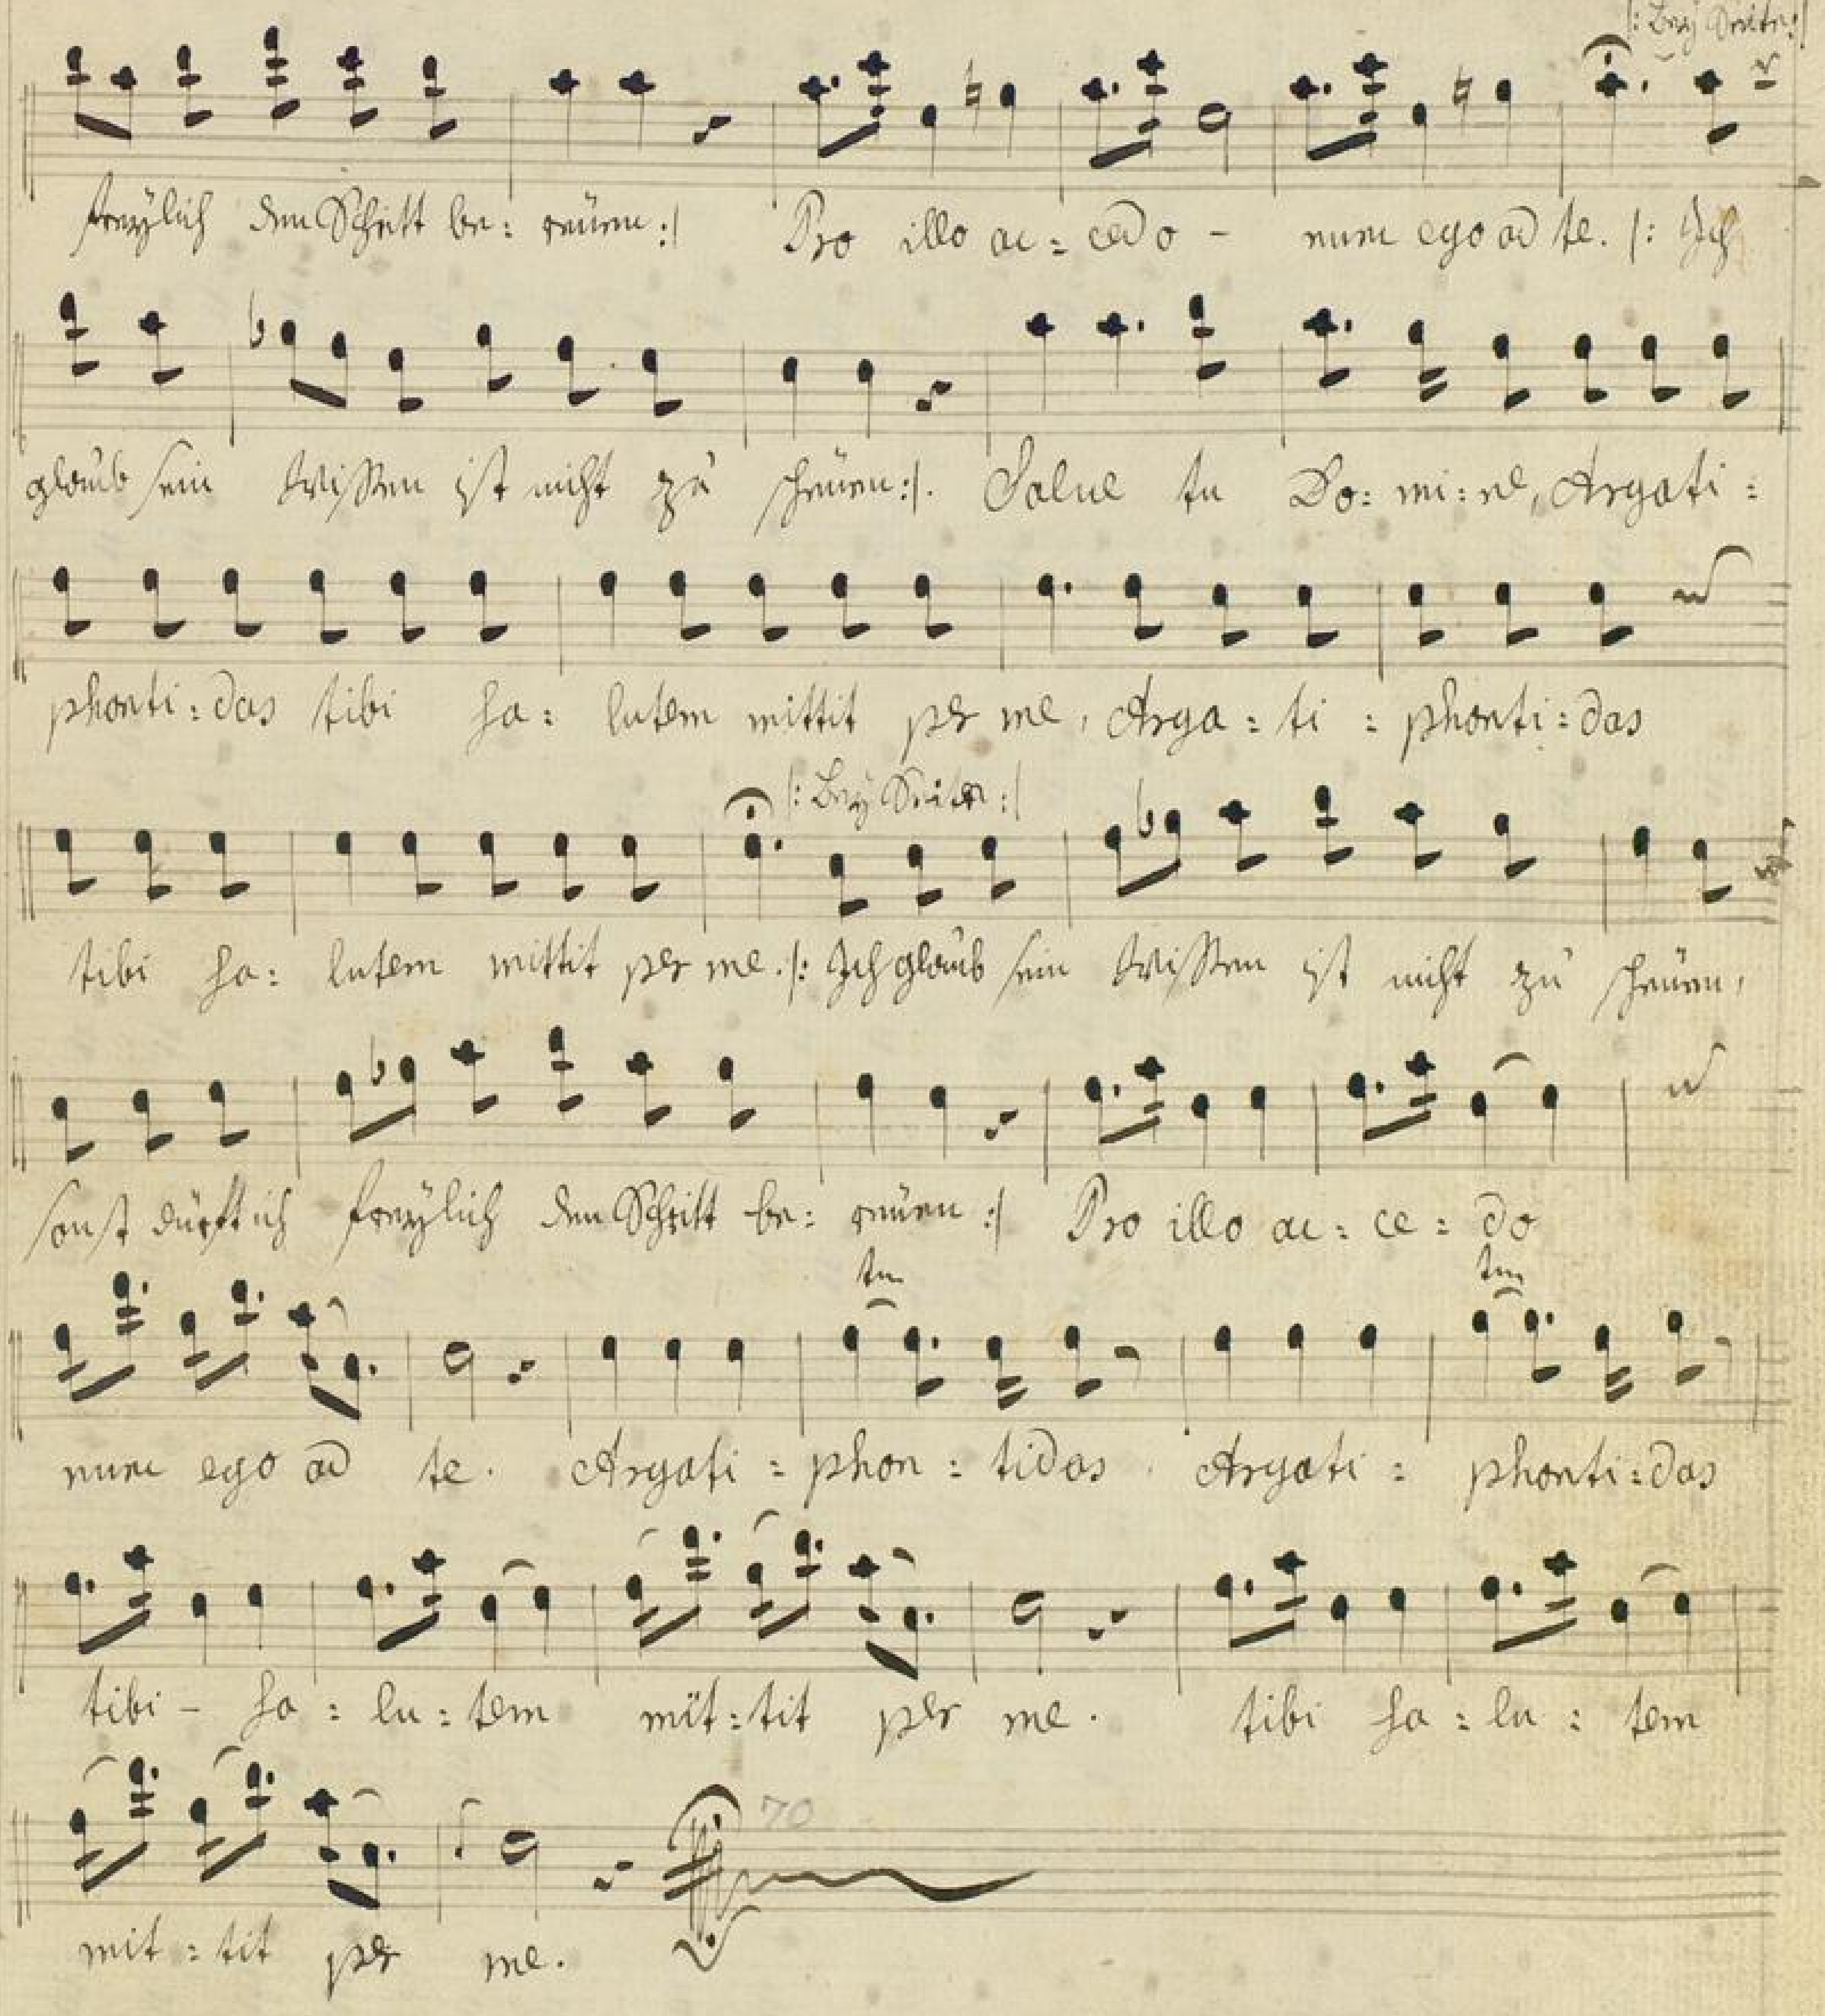 |: Bey Seite :|
freÿlich den Schritt be: reüen :| Pro illo ac = cedo - nunc ego ad te. |: Ich
glaub sein Wissen ist nicht zu scheüen :|. Salve tu Do: mi: ne, Argati =
phonti: das tibi sa: lutem mittit per me, Arga = ti = phonti: das
|: Bey Seite :|
tibi sa: lutem mittit per me. |: Ich glaub sein Wissen ist nicht zu scheüen,
sonst dürft ich freÿlich den Schritt be: reüen :| Pro illo ac = ce = do
tr tr
nunc ego ad te. Argati = phon = tidas. Argati = phonti: das
tibi - sa = lu = tem mit: tit per me. tibi sa = lu = tem
70
mit = tit per me.